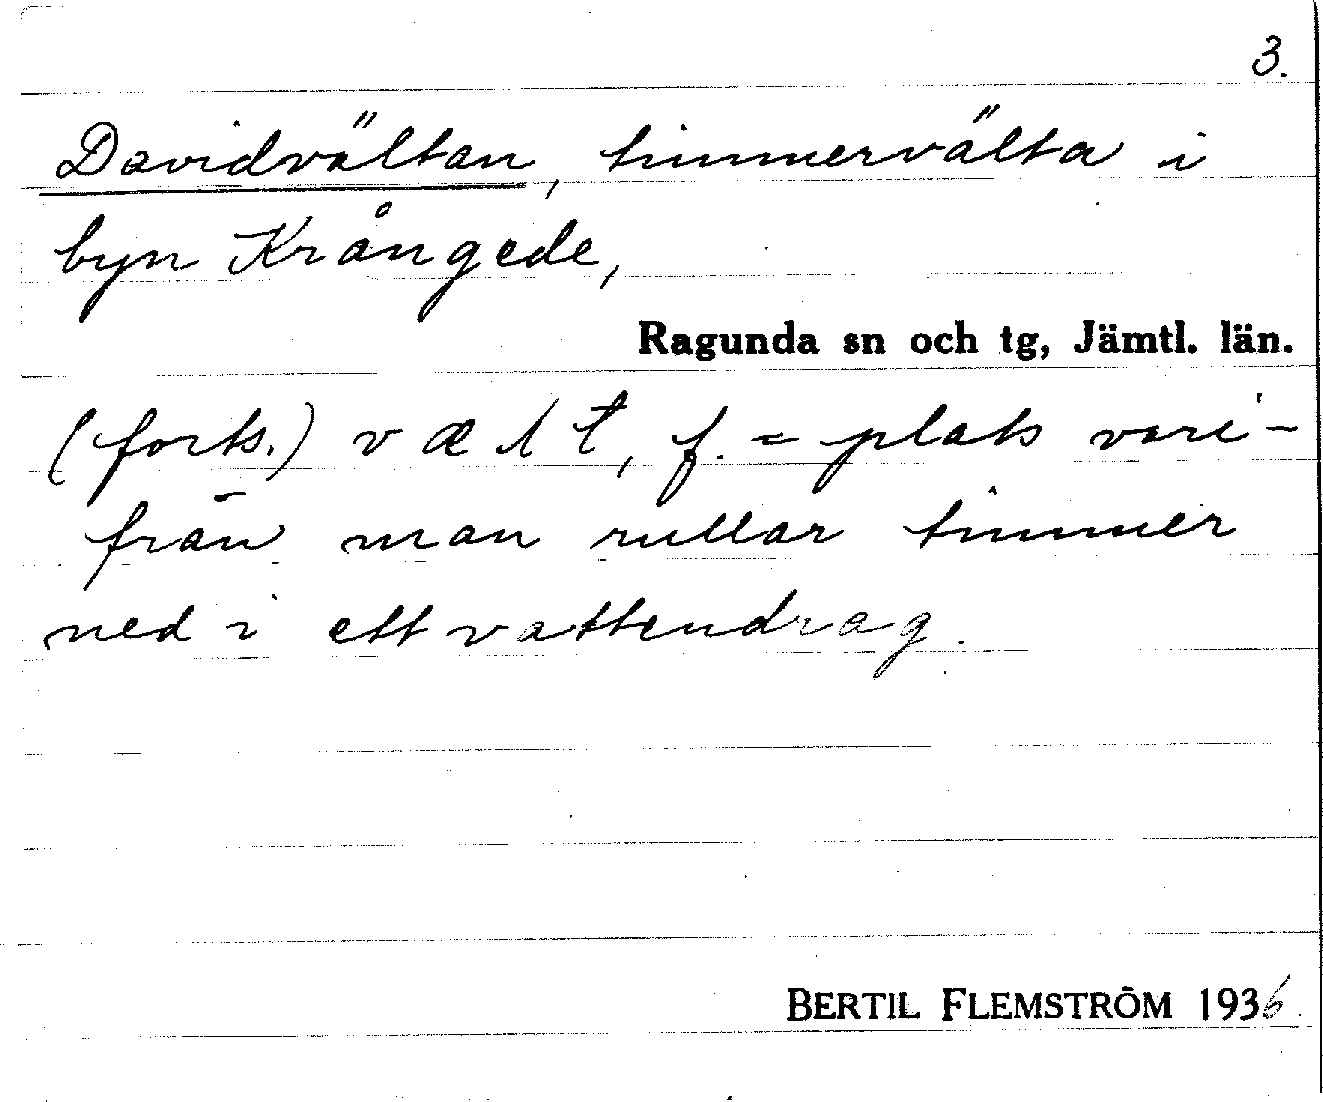 3.
Davidvältan, timmervälta i
byn Krångede,
Ragunda sn och tg, Jämtl. län.
(forts.) væl t, f. = plats vari-
från man rullar timmer
ned i ett vattendrag.
BERTIL FLEMSTRÖM 1936.